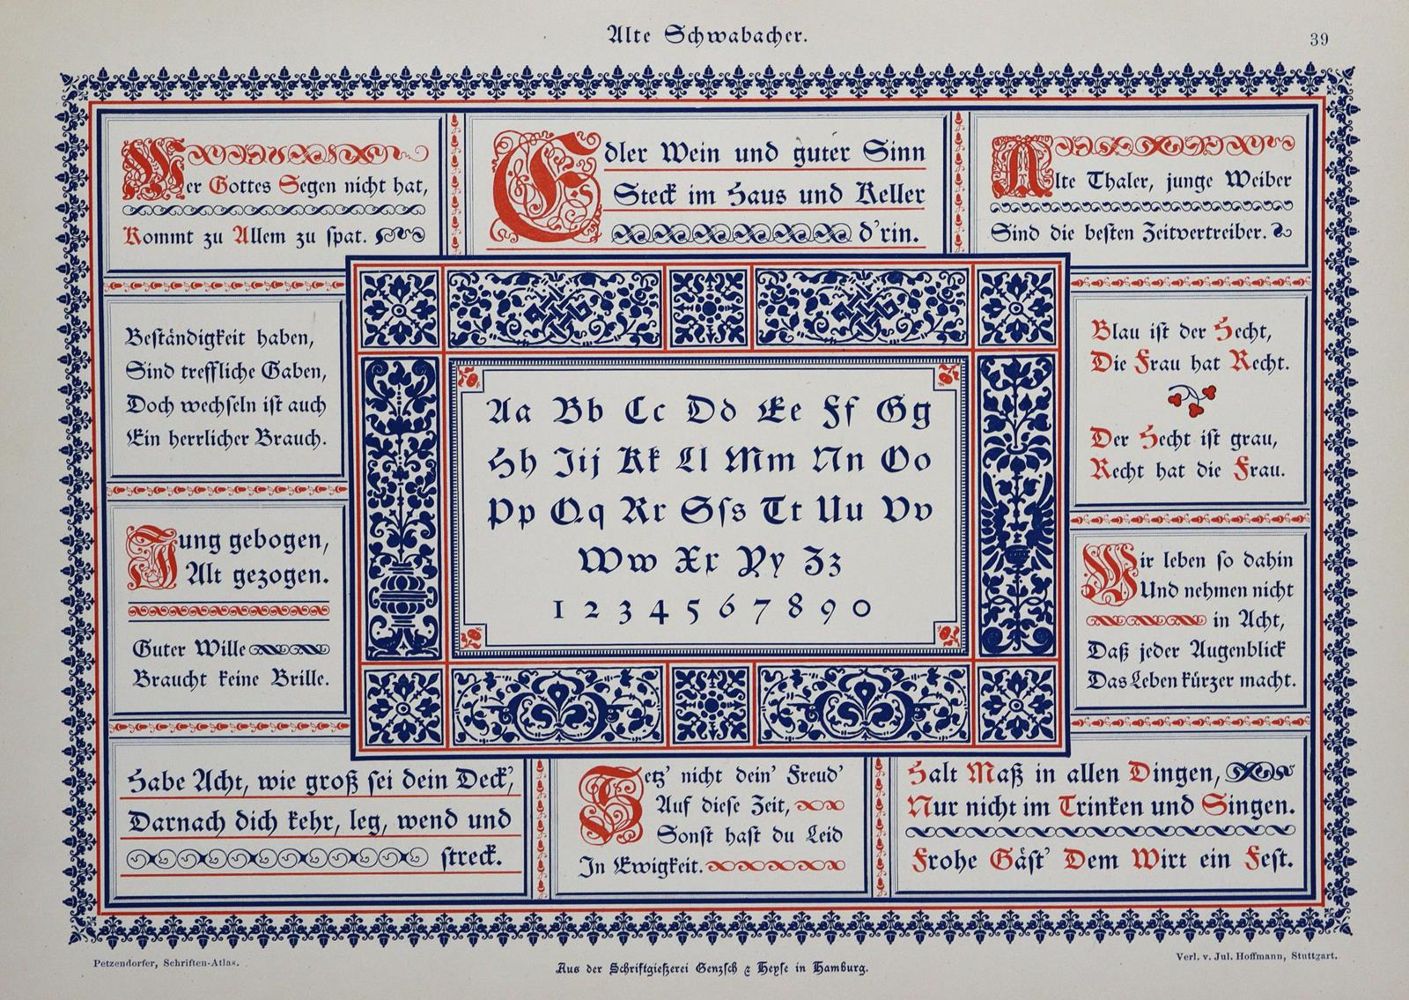 Alte Schwabacher.
39
Wer Gottes Segen nicht hat,
Kommt zu Allem zu spat.
Edler Wein und guter Sinn
Steckt im Haus und Keller
d'rin.
Alte Thaler, junge Weiber
Sind die besten Zeitvertreiber.
Beständigkeit haben,
Sind treffliche Gaben,
Doch wechseln ist auch
Ein herrlicher Brauch.
Blau ist der Hecht,
Die Frau hat Recht.
Der Hecht ist grau,
Recht hat die Frau.
Aa Bb Cc Dd Ee Ff Gg
Hh Jij Kk Ll Mm Nn Oo
Pp Qq Rr Sſs Tt Uu Vv
Ww Xx Yy Zz
1 2 3 4 5 6 7 8 9 0
Jung gebogen,
Alt gezogen.
Guter Wille
Braucht keine Brille.
Wir leben so dahin
Und nehmen nicht
in Acht,
Daß jeder Augenblick
Das Leben kürzer macht.
Habe Acht, wie groß sei dein Deck',
Darnach dich kehr, leg, wend und
streck.
Setz' nicht dein' Freud'
Auf diese Zeit,
Sonst hast du Leid
In Ewigkeit.
Halt Maß in allen Dingen,
Nur nicht im Trinken und Singen.
Frohe Gäst' Dem Wirt ein Fest.
Petzendorfer, Schriften-Atlas.
Aus der Schriftgießerei Genzsch & Heyse in Hamburg.
Verl. v. Jul. Hoffmann, Stuttgart.